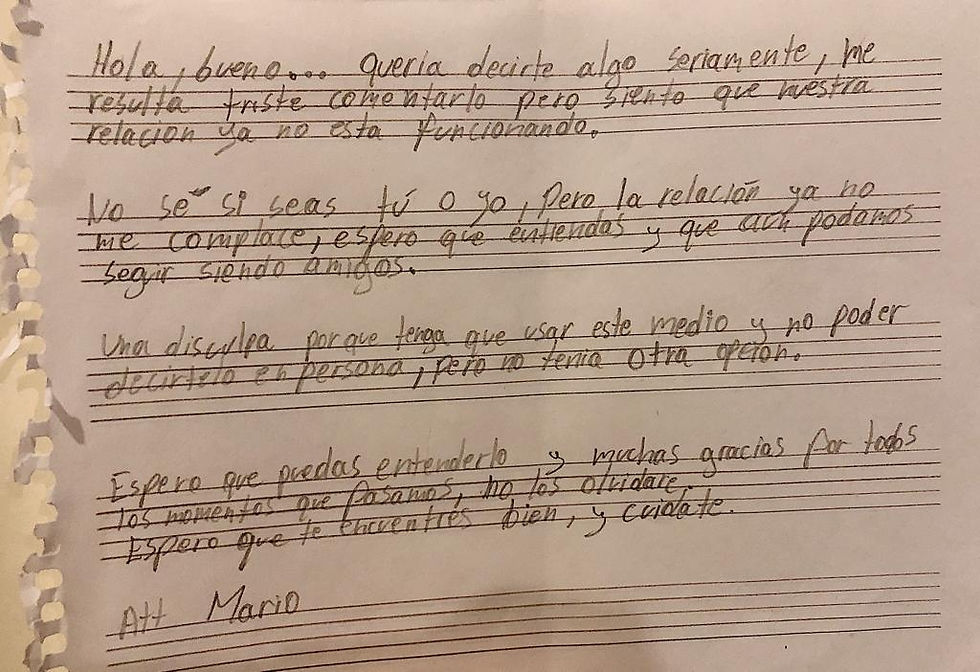 Hola, bueno... queria decirte algo seriamente, me
resulta triste comentarlo pero siento que nuestra
relacion ya no esta funcionando.
No sé si seas tú o yo, pero la relación ya no
me complace, espero que entiendas y que aun podamos
seguir siendo amigos.
Una disculpa porque tenga que usar este medio y no poder
decirtelo en persona, pero no tenia otra opcion.
Espero que puedas entenderlo y muchas gracias por todos
los momentos que pasamos, no los olvidare.
Espero que te encuentres bien, y cuidate.
Att Mario